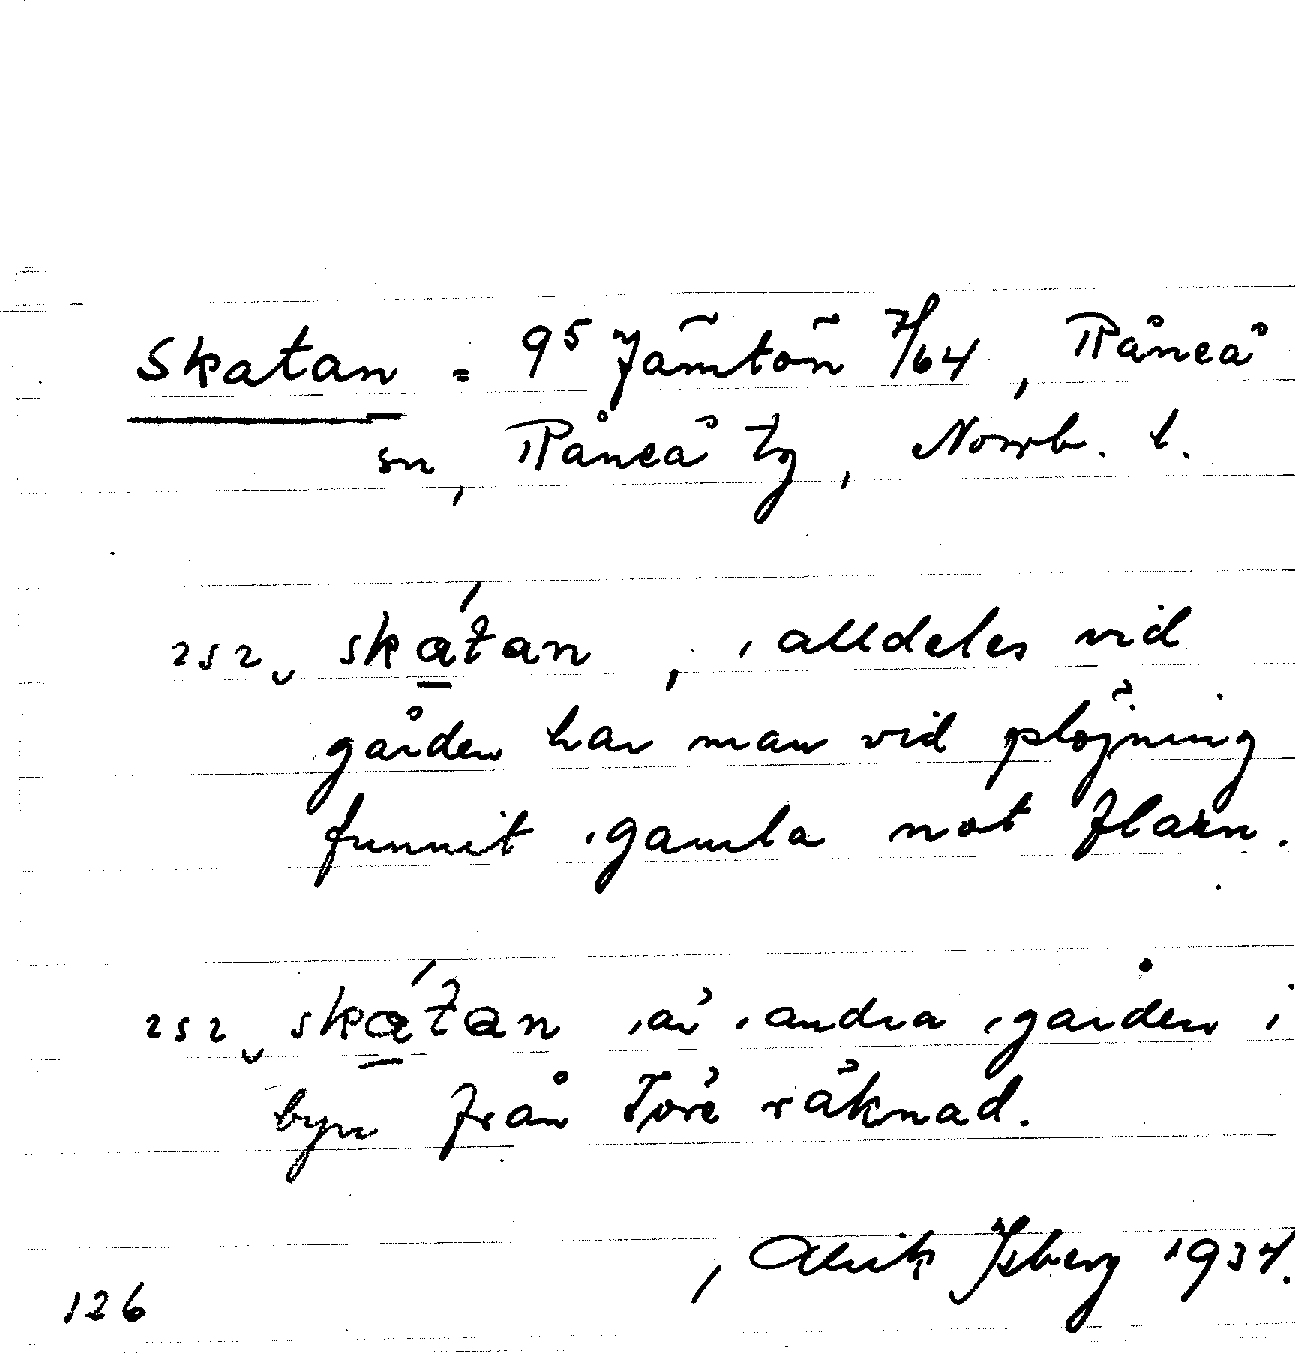 Skatan = 9⁵ Jämtön 7/64, Råneå
sn, Råneå tg, Norrb. l.
skátan, alldeles vid
gården har man vid plöjning
funnit gamla not flarn.
skátan är andra gården i
byn från Töre räknad.
Alrik Isberg 1934.
126